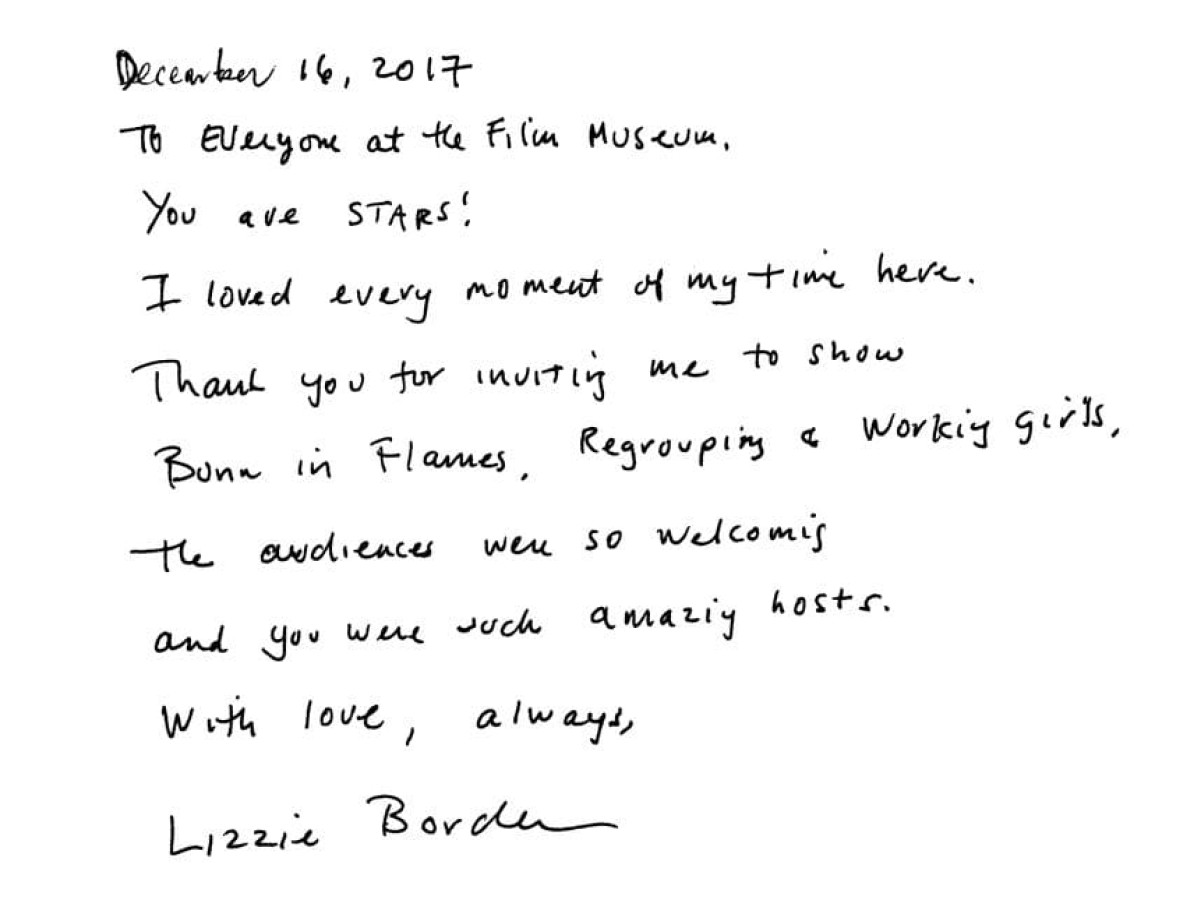 December 16, 2017
To Everyone at the Film Museum,
You are STARS!
I loved every moment of my time here.
Thank you for inviting me to show
Born in Flames, Regrouping & Working Girls,
the audiences were so welcoming
and you were such amazing hosts.
With love, always,
Lizzie Borden